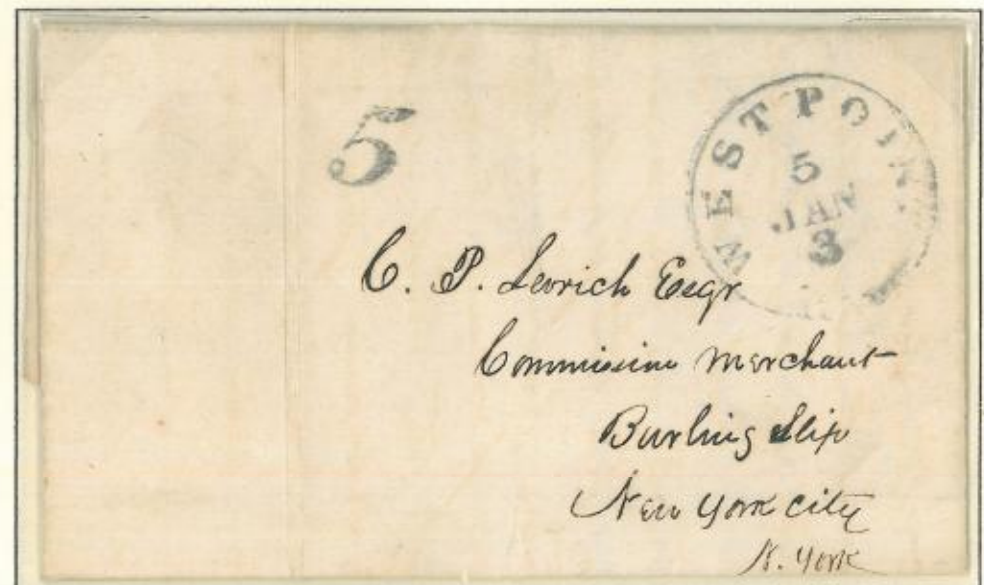 5
WEST POINT
5
JAN
3
C. P. Leverich Esqr
Commission Merchant
Burling Slip
New York City
N. York